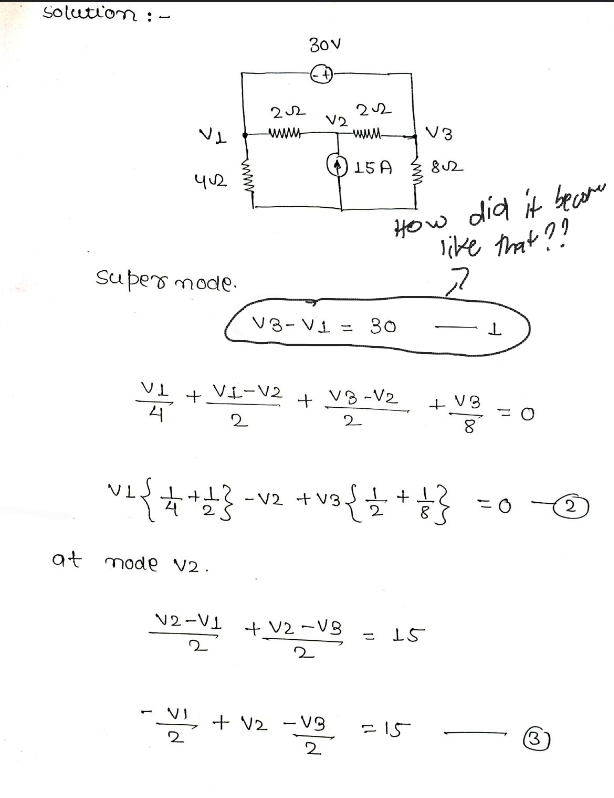 Solution :-
30V
- +
2Ω V2 2Ω
V1 V3
4Ω 15A 8Ω
How did it become
like that??
Super node.
V3 - V1 = 30 — 1
V1/4 + V1-V2/2 + V3-V2/2 + V3/8 = 0
V1{1/4 + 1/2} - V2 + V3{1/2 + 1/8} = 0 — ②
at node V2.
V2-V1/2 + V2-V3/2 = 15
- V1/2 + V2 - V3/2 = 15 — ③